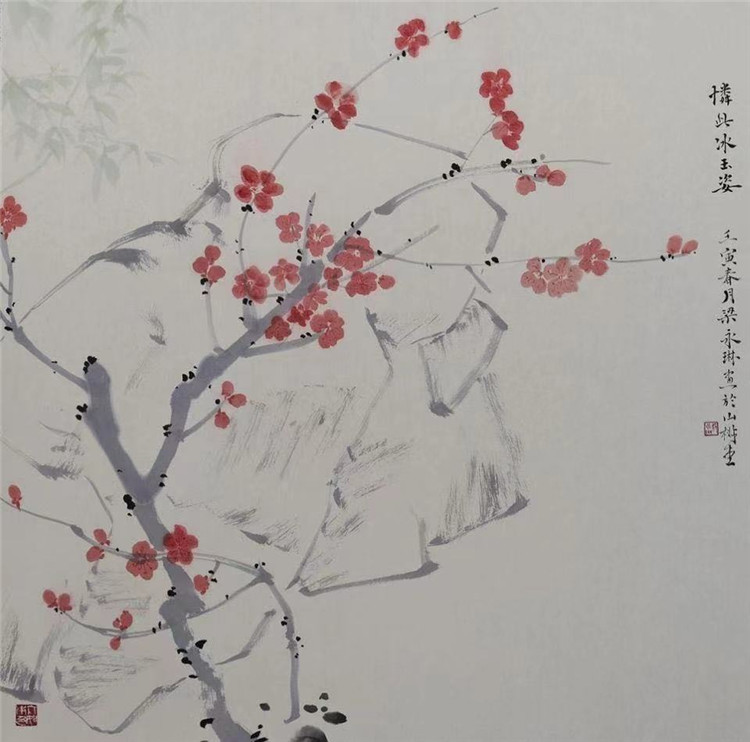 憐此冰玉姿
壬寅春月梁永琳畫於山樹堂